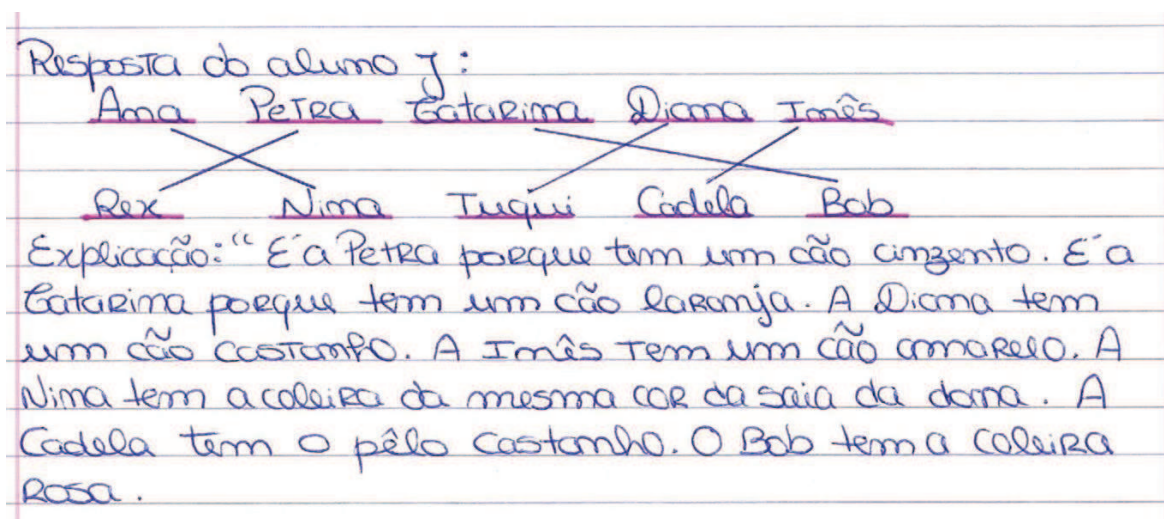 Resposta do aluno J:
Ana Petra Catarina Diana Inês
Rex Nina Tuqui Cadela Bob
Explicação: “É a Petra porque tem um cão cinzento. É a
Catarina porque tem um cão laranja. A Diana tem
um cão castanho. A Inês tem um cão amarelo. A
Nina tem a coleira da mesma cor da saia da dona. A
Cadela tem o pêlo castanho. O Bob tem a coleira
rosa.